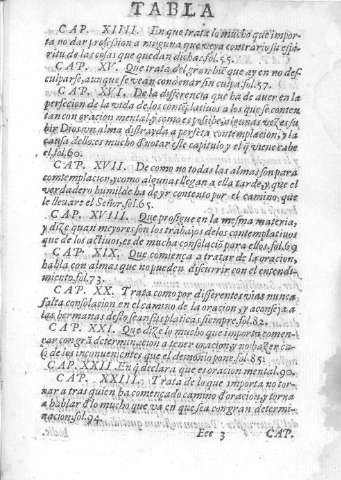 TABLA
CAP. XIIII. En que trata lo mucho que impor-
ta no dar profession a ninguna que vaya contrario su espi-
ritu de las cosas que quedan dichas. fol. 55.
CAP. XV. Que trata del gran biẽ que ay en no des-
culparse, aunque se vean condenar sin culpa. fol. 57.
CAP. XVI. De la differencia que ha de auer en la
perfecion de la vida de los contẽplatiuos a los que se conten-
tan con oracion mental, y como es possible, algunas vezes su-
bir Dios vn alma distrayda a perfeta contemplacion, y la
causa dello: es mucho d'notar este capitulo y el q̃ viene cabe
el. fol. 60.
CAP. XVII. De como no todas las almas son para
contemplacion, y como algunas llegan a ella tarde, y que el
verdadero humilde ha de yr contento por el camino, que
le lleuare el Señor. fol. 65.
CAP. XVIII. Que prosigue en la mesma materia,
y dize quan mayores son los trabajos de los contemplatiuos
que de los actiuos, es de mucha consolaciõ para ellos. fol. 69
CAP. XIX. Que comiença a tratar de la oracion,
habla con almas que no puedẽ discurrir con el entendi-
miento. fol. 73.
CAP. XX. Trata como por differentes vias nunca
falta consolacion en el camino de la oracion, y aconseja a
las hermanas desto seã sus platicas siempre. fol. 82.
CAP. XXI. Que dize lo mucho que importa comen-
çar con grã determinacion a tener oracion, y no hazer ca-
so de los inconuenientes que el demonio pone. fol. 85.
CAP. XXII. En q̃ declara que es oracion mental. 90.
CAP. XXIII. Trata de lo que importa no tor-
nar a tras quien ha començado camino d'oracion, y torna
a hablar d'lo mucho que va en que sea con gran determi-
nacion. fol. 94.
Eee 3 CAP.